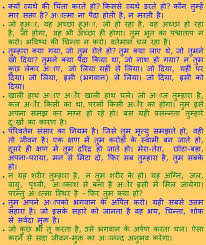 क्यों व्यर्थ की चिंता करते हो? किससे व्यर्थ डरते हो? कौन तुम्हें
मार सक्ता है? अात्मा ना पैदा होती है, न मरती है।
जो हुअा, वह अच्छा हुअा, जो हो रहा है, वह अच्छा हो रहा
है, जो होगा, वह भी अच्छा ही होगा। तुम भूत का पश्चाताप न
करो। भविष्य की चिन्ता न करो। वर्तमान चल रहा है।
तुम्हारा क्या गया, जो तुम रोते हो? तुम क्या लाए थे, जो तुमने
खो दिया? तुमने क्या पैदा किया था, जो नाश हो गया? न तुम
कुछ लेकर अाए, जो लिया यहीं से लिया। जो दिया, यहीं पर
दिया। जो लिया, इसी (भगवान) से लिया। जो दिया, इसी को
दिया।
खाली हाथ अाए अौर खाली हाथ चले। जो अाज तुम्हारा है,
कल अौर किसी का था, परसों किसी अौर का होगा। तुम इसे
अपना समझ कर मग्न हो रहे हो। बस यही प्रसन्नता तुम्हारे
दु:खों का कारण है।
परिवर्तन संसार का नियम है। जिसे तुम मृत्यु समझते हो, वही
तो जीवन है। एक क्षण में तुम करोड़ों के स्वामी बन जाते हो,
दूसरे ही क्षण में तुम दरिद्र हो जाते हो। मेरा-तेरा, छोटा-बड़ा,
अपना-पराया, मन से मिटा दो, फिर सब तुम्हारा है, तुम सबके
हो।
न यह शरीर तुम्हारा है, न तुम शरीर के हो। यह अग्नि, जल,
वायु, पृथ्वी, अाकाश से बना है अौर इसी में मिल जायेगा।
परन्तु अात्मा स्थिर है - फिर तुम क्या हो?
तुम अपने अापको भगवान के अर्पित करो। यही सबसे उत्तम
सहारा है। जो इसके सहारे को जानता है वह भय, चिन्ता, शोक
से सर्वदा मुक्त है।
जो कुछ भी तू करता है, उसे भगवान के अर्पण करता चल। ऐसा
करने से सदा जीवन-मुक्त का अानंन्द अनुभव करेगा।